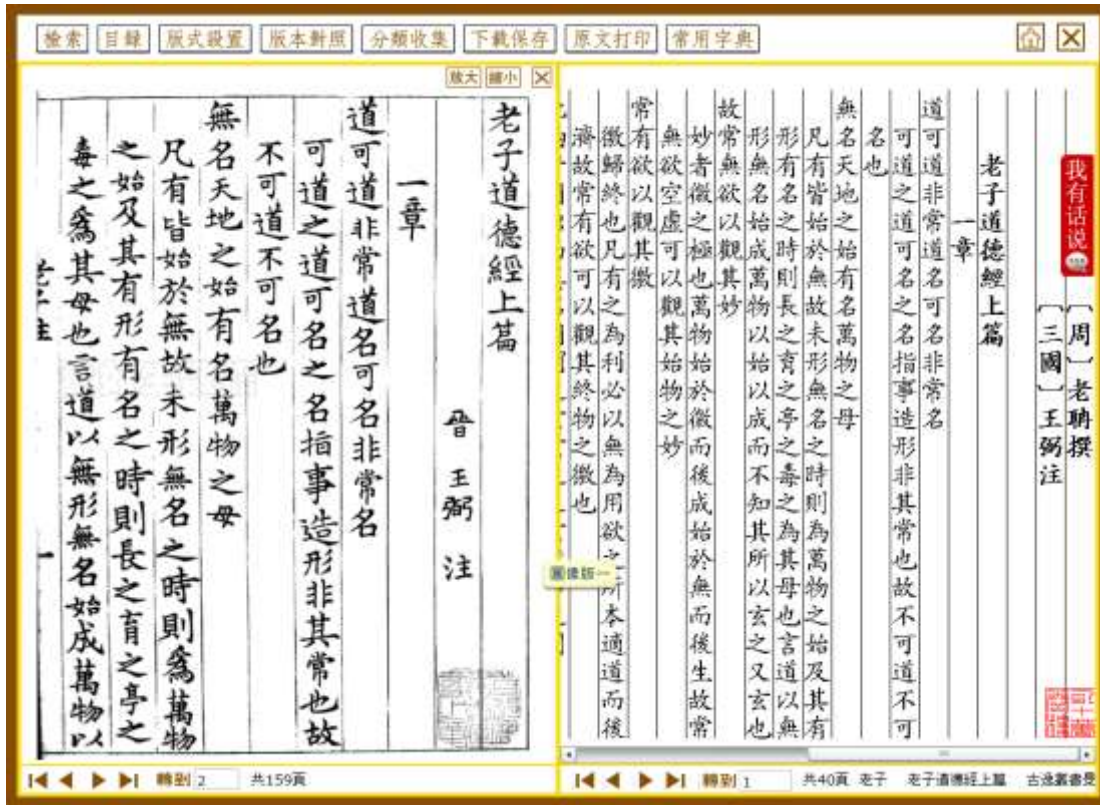 檢索 目録 版式設置 版本對照 分類收集 下載保存 原文打印 常用字典
放大 縮小
老子道德經上篇
晉 王弼 注
一章
道可道非常道名可名非常名
可道之道可名之名指事造形非其常也故
不可道不可名也
無名天地之始有名萬物之母
凡有皆始於無故未形無名之時則爲萬物
之始及其有形有名之時則長之育之亭之
毒之爲其母也言道以無形無名始成萬物以
轉到 2 共159頁
我有话说
〔周〕老聃撰
〔三國〕王弼注
老子道德經上篇
一章
道可道非常道名可名非常名
可道之道可名之名指事造形非其常也故不可道不可
名也
無名天地之始有名萬物之母
凡有皆始於無故未形無名之時則為萬物之始及其有
形有名之時則長之育之亭之毒之為其母也言道以無
形無名始成萬物以始以成而不知其所以玄之又玄也
故常無欲以觀其妙
妙者微之極也萬物始於微而後成始於無而後生故常
無欲空虛可以觀其始物之妙
常有欲以觀其徼
徼歸終也凡有之為利必以無為用欲之所本適道而後
濟故常有欲可以觀其終物之徼也
圖像版一
轉到 1 共40頁 老子 老子道德經上篇 古逸叢書